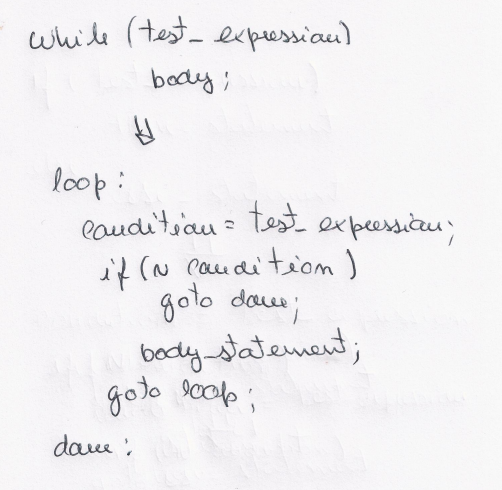 while (test_expression)
body;
⇓
loop:
condition = test_expression;
if (~ condition)
goto done;
body_statement;
goto loop;
done: